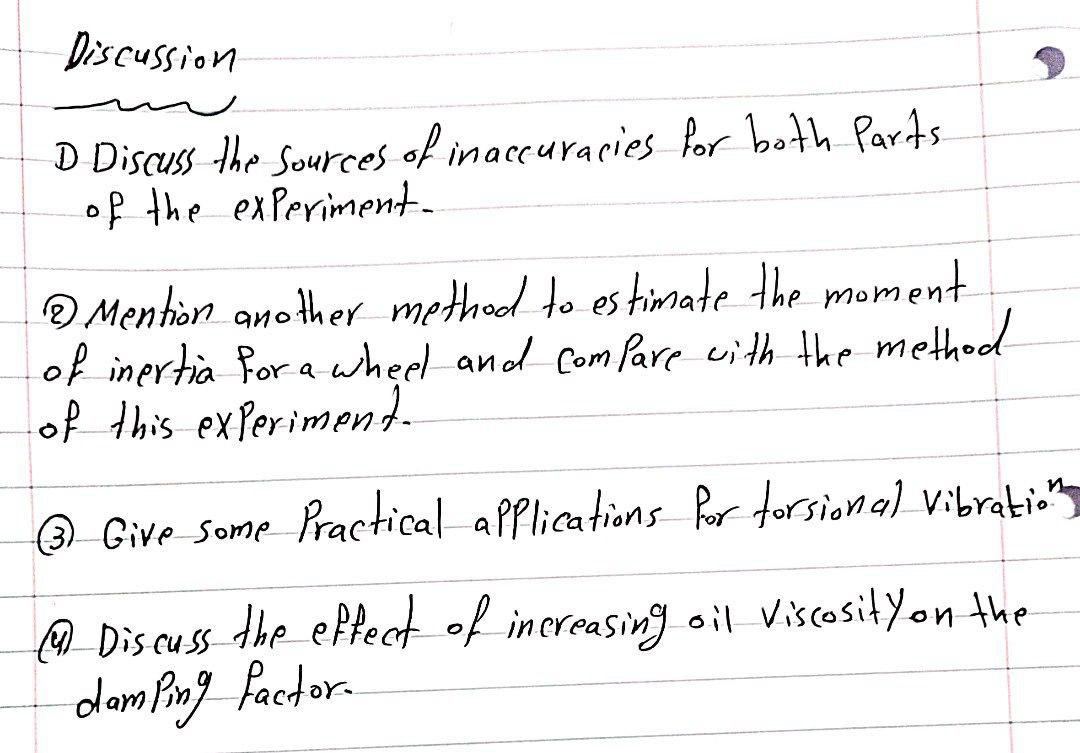 Discussion
1) Discuss the sources of inaccuracies for both Parts
of the experiment.
② Mention another method to estimate the moment
of inertia for a wheel and compare with the method
of this experiment.
③ Give some Practical applications for torsional vibration
④ Discuss the effect of increasing oil viscosity on the
damping factor.